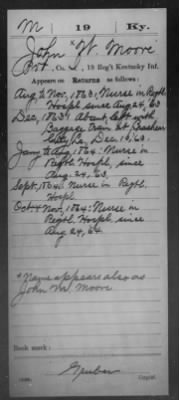 M 19 Ky.
John W. Moore
Pvt., Co. 19 Reg't Kentucky Inf.
Appears on Returns as follows:
Aug. to Nov., 1863; Nurse in Regtl.
Hospl. since Aug 24, 63
Dec., 1863; Absent, left with
Baggage Train at
La., Dec. 63.
Jany. to 1864: Nurse in
Regtl. Hospl., since
Aug. 24, 63.
Sept, 1864: Nurse in Regtl.
Hospl.
Oct & Nov., 1864: Nurse in
Regtl. Hospl. since
Aug 24, 64.
*Name appears also as
John M. Moore
Book mark:
Gruber
Copyist.